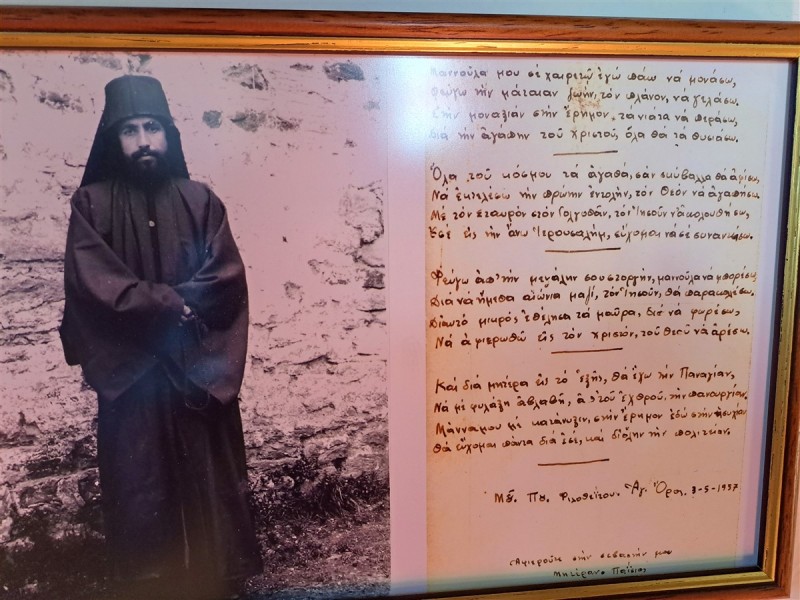 Μαννούλα μου σέ χαιρετῶ ἐγώ πάω νά μονάσω,
Φεύγω τήν μάταιαν ζωήν, τόν πλάνον, νά γελάσω.
Στήν μοναξιάν στήν ἔρημον τα νιατα νά περάσω,
Διά τήν ἀγάπην τοῦ Χριστοῦ, ὅλα θά τά θυσιάσω.
Ὅλα τοῦ κόσμου τά ἀγαθά, σάν σκύβαλλα θά ἀφίσω,
Νά ἐκτελέσω τήν πρώτην ἐντολήν, τόν Θεόν νά ἀγαπήσω.
Μέ τόν σταυρόν στόν Γολγοθάν, τόν Ἰησοῦν νά ἀκολουθήσω,
Ἐσέ εἰς τήν ἄνω Ἱερουσαλήμ, εὔχομαι νά σέ συναντήσω.
Φεύγω ἀπ' τήν μεγάλην σου στοργήν, μαννούλα νά μπορέσω,
Διά νά ἤμεθα αἰώνια μαζί, τόν Ἰησοῦν, θά παρακαλέσω.
Δι αυτό μικρός, ἐθέλησα τά μαῦρα, διά νά φορέσω,
Νά ἀφιερωθῶ εἰς τόν χριστόν, τοῦ Θεοῦ νά ἀρέσω.
Και διά μητέρα εἰς τό ἑξῆς, θά ἔχω τήν Παναγίαν,
Νά μέ φυλάξη ἀβλαβῆ, ἀπ' τοῦ ἐχθροῦ, τήν πανουργίαν.
Μάννα μου μέ κατάνυξιν, στήν ἔρημον ἐδῶ στήν ἡσυχίαν
Θά εὔχομαι πάντα διά ἐσέ, και δι ὅλην τήν πολιτείαν.
Φιλοθεΐτου. Ἁγ. Ὄρος. 3-5-1957
Ἀφιεροῦτε στήν σεβαστήν μου
μητέραν Παΐσιος